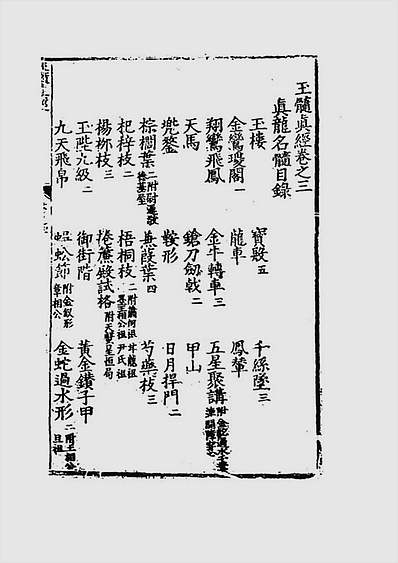 玉髓眞經卷之三
眞龍名髓目錄
玉樓 寶殿五 千絲墜三
金鸞瓊閣一 龍車 鳳輦
翔鸞飛鳳 金牛轉車三 五星聚講
天馬 鎗刀劒戟二 甲山
兠鍪 鞍形 日月捍門二
棕櫚葉二 蕉葉四 芍藥枝三
杞梓枝二 梧桐枝二
楊柳枝二 捲簾殿試格
玉陛九級二 御街階 黃金鑽子甲
九天飛帛 蜈蚣節 附金釵形 章相公 金蛇過水形二 附王相公 且祖